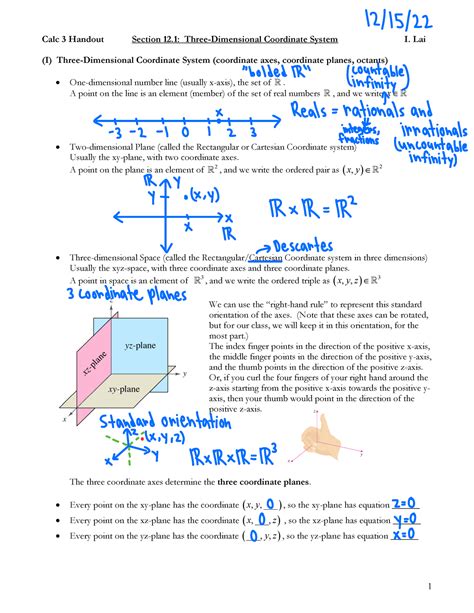 12/15/22
Calc 3 Handout Section 12.1: Three-Dimensional Coordinate System I. Lai
(I) Three-Dimensional Coordinate System (coordinate axes, coordinate planes, octants)
"bolded ℝ" (countable infinity)
• One-dimensional number line (usually x-axis), the set of ℝ.
A point on the line is an element (member) of the set of real numbers ℝ, and we write x∈ℝ
Reals = rationals and irrationals
integers, fractions
(uncountable infinity)
x
-3 -2 -1 0 1 2 3
• Two-dimensional Plane (called the Rectangular or Cartesian Coordinate system)
Usually the xy-plane, with two coordinate axes.
A point on the plane is an element of ℝ², and we write the ordered pair as (x, y)∈ℝ²
ℝ y
y (x,y)
ℝ×ℝ=ℝ²
x x
ℝ
→Descartes
• Three-dimensional Space (called the Rectangular/Cartesian Coordinate system in three dimensions)
Usually the xyz-space, with three coordinate axes and three coordinate planes.
A point in space is an element of ℝ³, and we write the ordered triple as (x, y, z)∈ℝ³
3 coordinate planes
We can use the "right-hand rule" to represent this standard
orientation of the axes. (Note that these axes can be rotated,
but for our class, we will keep it in this orientation, for the
most part.)
The index finger points in the direction of the positive x-axis,
the middle finger points in the direction of the positive y-axis,
and the thumb points in the direction of the positive z-axis.
Or, if you curl the four fingers of your right hand around the
z-axis starting from the positive x-axis towards the positive y-
axis, then your thumb would point in the direction of the
positive z-axis.
z
yz-plane
xz-plane
y
xy-plane
x
Standard orientation
z (x,y,z)
x y
ℝ×ℝ×ℝ=ℝ³
The three coordinate axes determine the three coordinate planes.
• Every point on the xy-plane has the coordinate (x, y, 0), so the xy-plane has equation z=0
• Every point on the xz-plane has the coordinate (x, 0, z), so the xz-plane has equation y=0
• Every point on the yz-plane has the coordinate (0, y, z), so the yz-plane has equation x=0
1